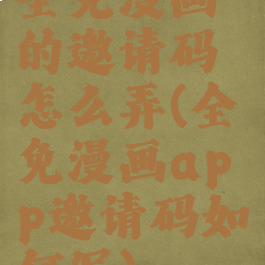 全免漫画
的邀请码
怎么弄(全
免漫画ap
p邀请码如